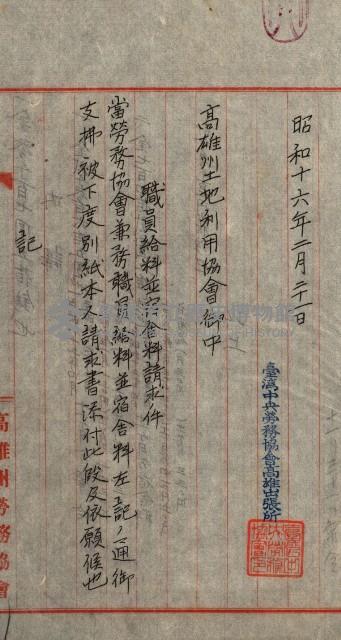 昭和十六年二月二十一日
臺灣中央勞務協會高雄出張所
高雄州土地利用協會御中
職員給料並宿舍料請求件
當勞務協會兼務職員給料並宿舍料左記ノ通御
支拂被下度別紙本人請求書添付此段及依願候也
記
高雄州勞務協會